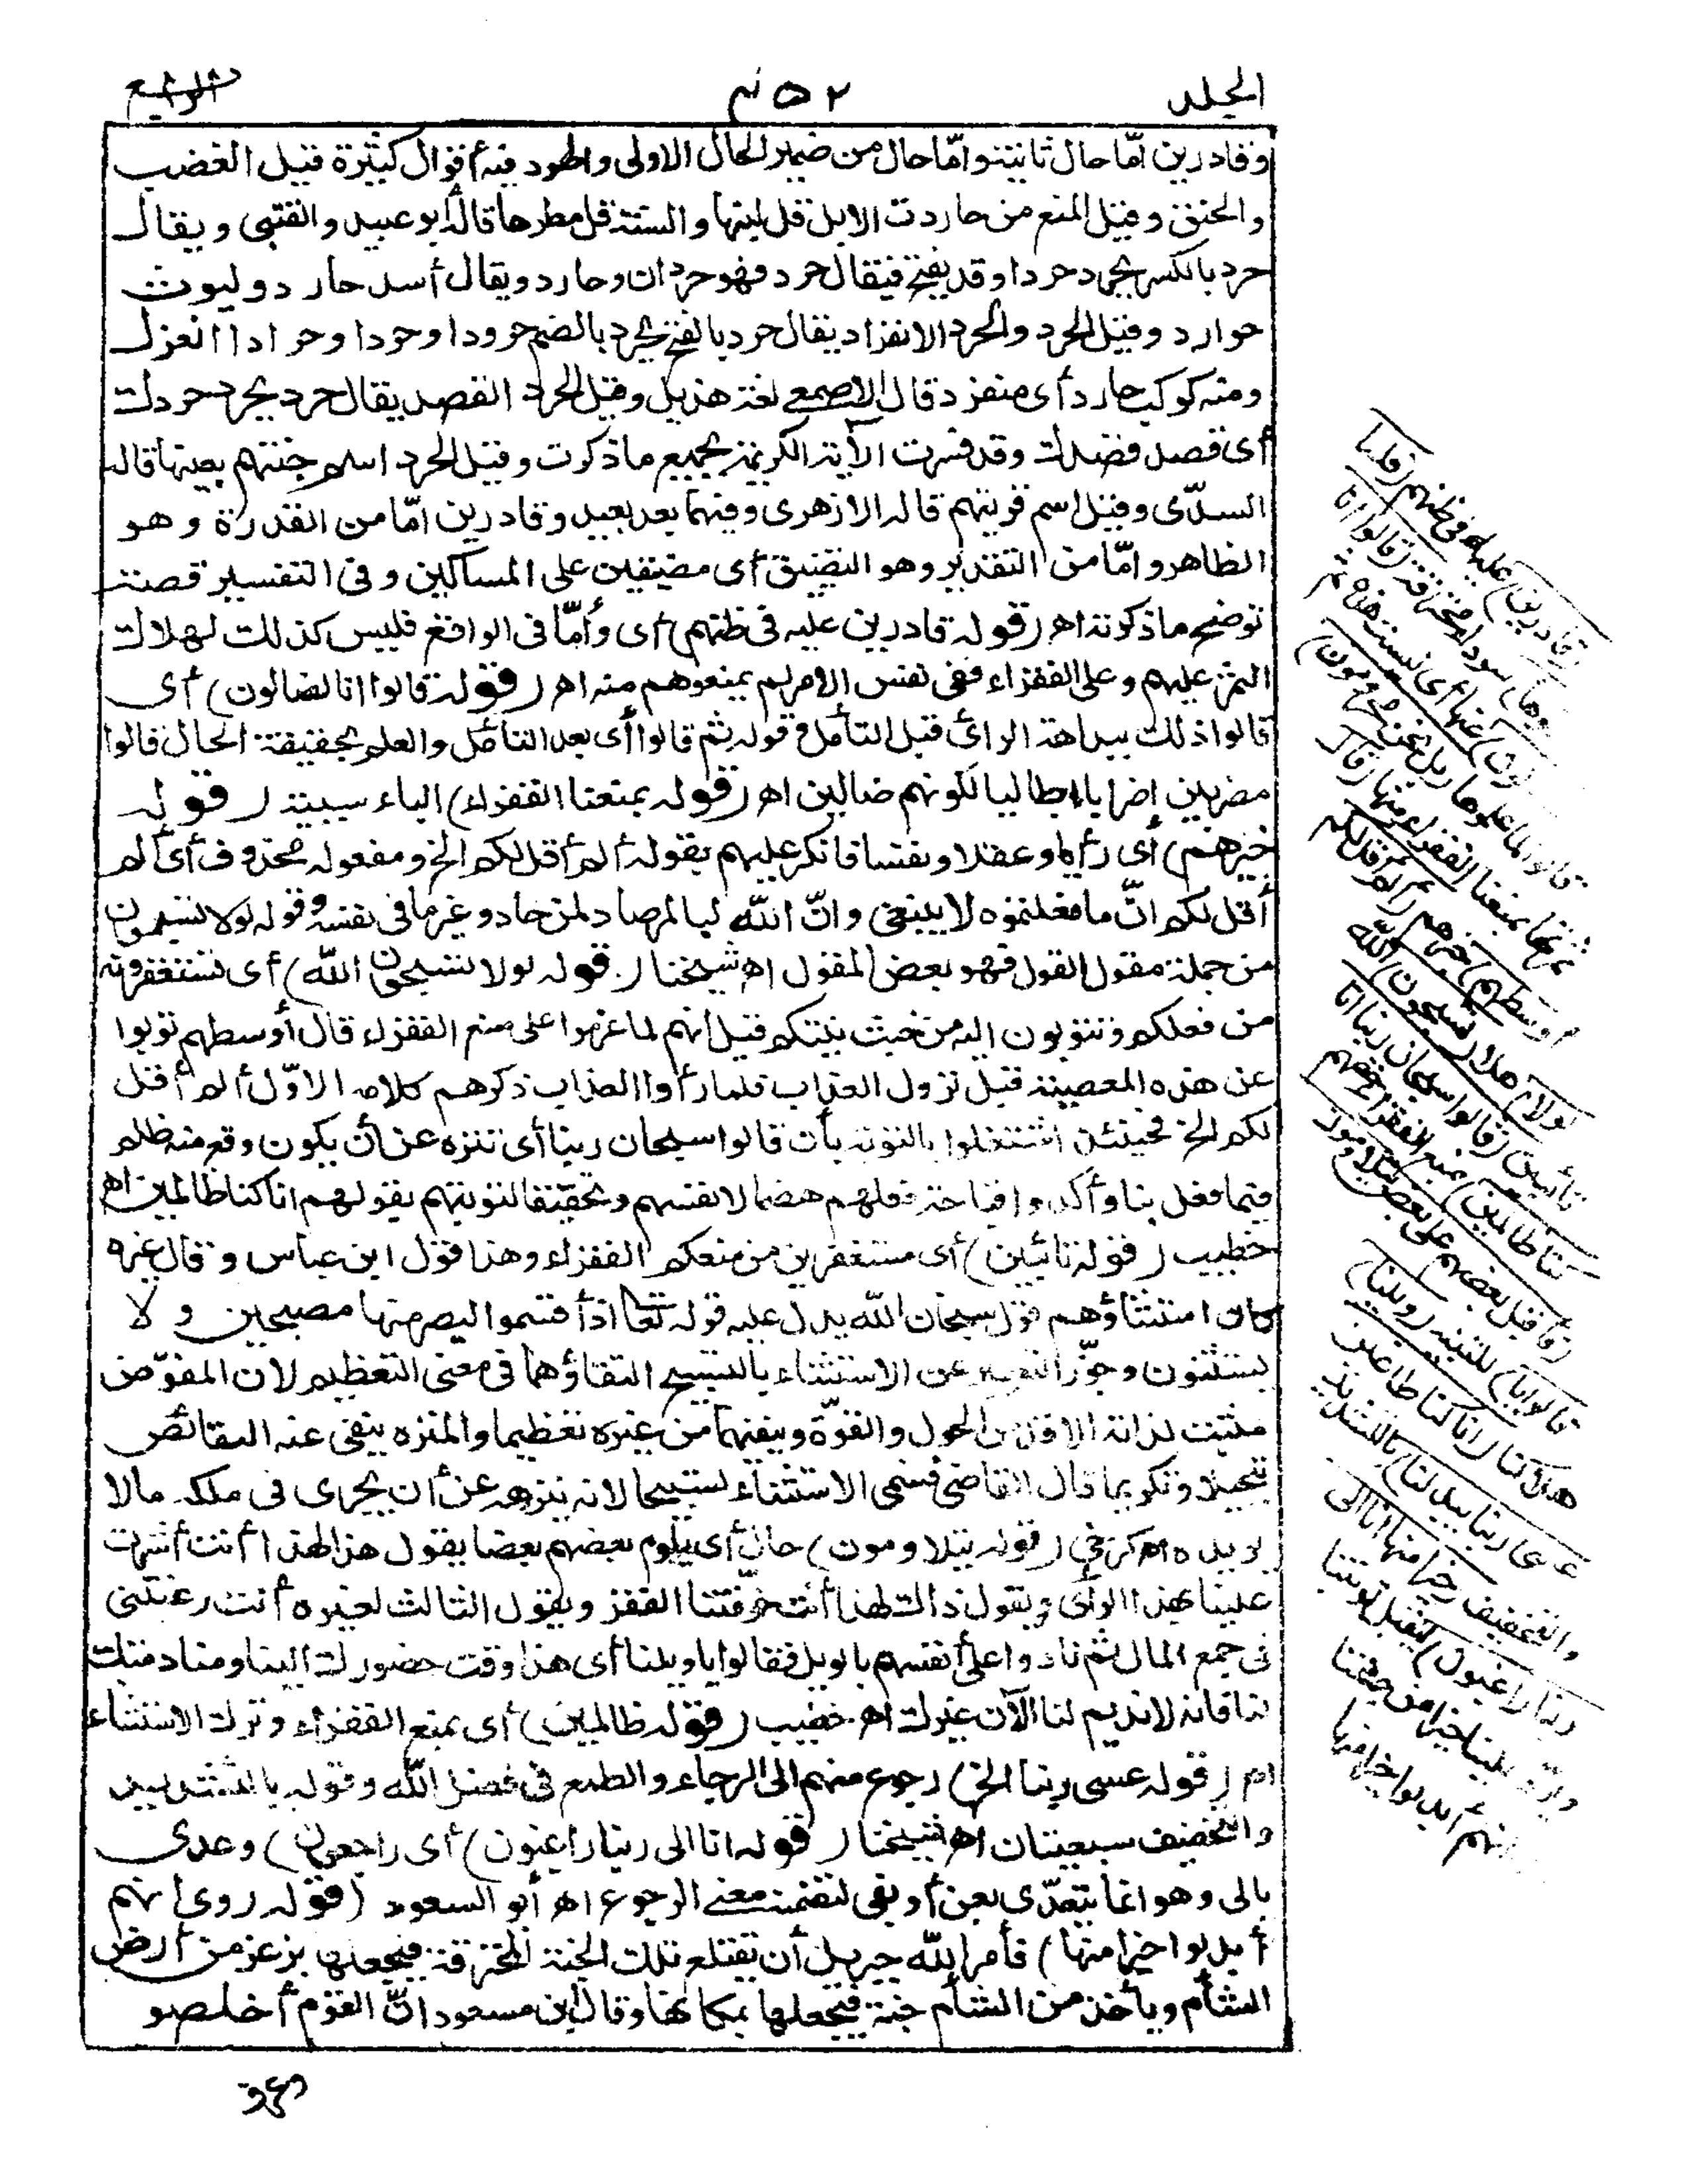 الجلد
٤٥٢
الرابع
وقادرين امّا حال ثانية وامّا حال من ضمير الحال الاولى والحرد فيه أقوال كثيرة قيل الغضب
والحنق وقيل المنع من حاردت الابل قل لبنها والسنة قل مطرها قاله أبو عبيد والقتبى ويقال
حرد بالكسر يحرد حردا وقد يفتح فيقال حرد فهو حردان وحارد ويقال أسد حارد وليوث
حوارد وقيل الحرد والحرد الانفراد يقال حرد بالفتح يحرد بالضم حرودا وحردا وحرادا انعزل
ومنه كوكب حارد أى منفرد قال الاصمعى لغة هذيل وقيل الحرد القصد يقال حرد يحرد حردك
أى قصد قصدك وقد فسرت الآية الكريمة بجميع ما ذكرت وقيل الحرد اسم جنتهم بعينها قاله
السدّى وقيل اسم قريتهم قاله الازهرى وفيهما بعد بعيد وقادرين امّا من القدرة وهو
الظاهر وامّا من التقدير وهو التضييق أى مضيقين على المساكين وفى التفسير قصته
توضح ما ذكرته اھ (قوله قادرين عليه فى ظنهم) أى وأمّا فى الواقع فليس كذلك لهلاك
الثمر عليهم وعلى الفقراء ففى نفس الامر لم يمنعوهم منه اھ (قوله قالوا انا لضالون) أى
قالوا ذلك ببداهة الرأى قبل التأمل وقوله ثم قالوا أى بعد التأمل والعلم بحقيقة الحال قالوا
مضربين إضرابا ابطاليا لكونهم ضالين اھ (قوله بمنعنا الفقراء) الباء سببية (قوله
خيرهم) أى رأيا وعقلا ونفسا فانكر عليهم بقوله ألم أقل لكم الخ ومفعوله محذوف أى ألم
أقل لكم انّ ما فعلتموه لا ينبغى وانّ الله لبالمرصاد لمن حاد وغير ما فى نفسه وقوله لولا تسبحون
من جملة مقول القول فهو بعض المقول اھ شيخنا (قوله لولا تسبحون الله) أى تستغفرونه
من فعلكم وتتوبون اليه من خبث نيتكم قيل انهم لما عزموا على منع الفقراء قال أوسطهم توبوا
عن هذه المعصية قبل نزول العذاب فلما رأوا العذاب ذكرهم كلامه الاوّل ألم أقل
لكم الخ فحينئذ اشتغلوا بالتوبة بأن قالوا سبحان ربنا أى تنزه عن أن يكون وقع منه ظلم
فيما فعل بنا وأكدوا قباحة فعلهم هضما لانفسهم وتحقيقا لتوبتهم بقولهم انا كنا ظالمين اھ
خطيب (قوله تائبين) أى مستغفرين من منعكم الفقراء وهذا قول ابن عباس وقال غيره
كان استثناؤهم قول سبحان الله يدل عليه قوله تعالى اذ أقسموا ليصرمنها مصبحين ولا
يستثنون وجوّز التعبير عن الاستثناء بالتسبيح التقاؤهما فى معنى التعظيم لان المفوّض
مثبت لذاته الاقدار الحول والقوّة وينفيهما من غيره تعظيما والمنزه ينفى عنه النقائص
تبجيلا وتكريما قال القاضى فسمى الاستثناء تسبيحا لانه ينزهه عن أن يجرى فى ملكه مالا
يريده اھ كرخى (قوله يتلاومون) حال أى يلوم بعضهم بعضا يقول هذا لهذا أنت أشرت
علينا بهذا الرأى ويقول ذاك لهذا أنت خوّفتنا الفقر ويقول الثالث لغيره أنت رغبتنى
فى جمع المال ثم نادوا على أنفسهم بالويل فقالوا ياويلنا أى هذا وقت حضورك الينا ومنادمتك
لنا فانه لا نديم لنا الآن غيرك اھ خطيب (قوله ظالمين) أى بمنع الفقراء وترك الاستثناء
اھ (قوله عسى ربنا الخ) رجوع منهم الى الرجاء والطمع فى فضل الله وقوله بالتشديد
والتخفيف سبعيتان اھ شيخنا (قوله انا الى ربنا راغبون) أى راجعون) وعدى
بالى وهو انما يتعدّى بعن أو بفى لتضمنه معنى الرجوع اھ أبو السعود (قوله روى انهم
أبدلوا خيرا منها) فأمر الله جبريل أن يقتلع تلك الجنة المحترقة فيجعلها بزغر من أرض
الشأم ويأخذ من الشأم جنة فيجعلها بمكانها وقال ابن مسعود انّ القوم أخلصو
(قادرين) عليه فى ظنهم (فلما
رأوها) سوداء محترقة (قالوا انا
لضالون) عنها أى ليست هذه ثم
قالوا لما علموها (بل نحن محرومون)
ثمرتها بمنعنا الفقراء منها (قال
أوسطهم) خيرهم (ألم أقل لكم
لولا) هلا (تسبحون) الله
تائبين (قالوا سبحان ربنا انا
كنا ظالمين) بمنع الفقراء حقهم
(فأقبل بعضهم على بعض يتلاومون
قالوا يا) للتنبيه (ويلنا)
هلاكنا (انا كنا طاغين
عسى ربنا أن يبدلنا) بالتشديد
والتخفيف (خيرا منها انا الى
ربنا راغبون) ليقبل توبتنا
ويرد علينا خيرا من جنتنا
انهم أبدلوا خيرا منها